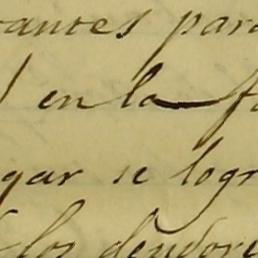 antes para
en la
gar se logr
los deudore